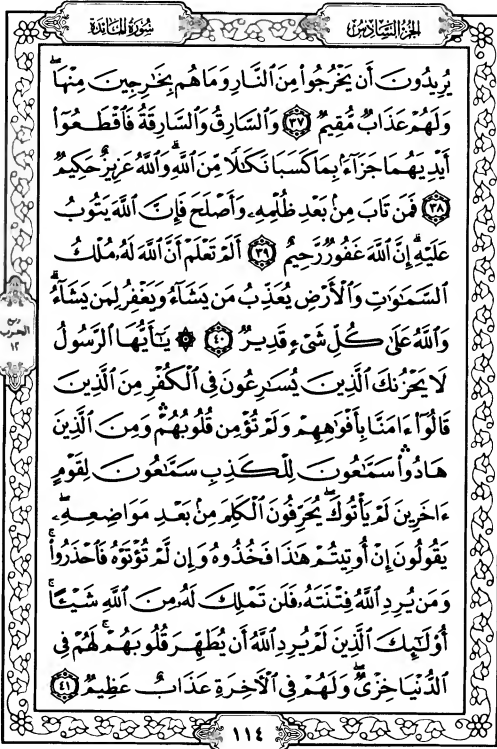 الجزء السادس
سورة المائدة
يُرِيدُونَ أَن يَخْرُجُوا۟ مِنَ ٱلنَّارِ وَمَا هُم بِخَـٰرِجِينَ مِنْهَاۖ
وَلَهُمْ عَذَابٌ مُّقِيمٌ ٣٧ وَٱلسَّارِقُ وَٱلسَّارِقَةُ فَٱقْطَعُوٓا۟
أَيْدِيَهُمَا جَزَآءًۢ بِمَا كَسَبَا نَكَـٰلًا مِّنَ ٱللَّهِۗ وَٱللَّهُ عَزِيزٌ حَكِيمٌ
٣٨ فَمَن تَابَ مِنۢ بَعْدِ ظُلْمِهِۦ وَأَصْلَحَ فَإِنَّ ٱللَّهَ يَتُوبُ
عَلَيْهِۗ إِنَّ ٱللَّهَ غَفُورٌ رَّحِيمٌ ٣٩ أَلَمْ تَعْلَمْ أَنَّ ٱللَّهَ لَهُۥ مُلْكُ
ٱلسَّمَـٰوَٰتِ وَٱلْأَرْضِ يُعَذِّبُ مَن يَشَآءُ وَيَغْفِرُ لِمَن يَشَآءُۗ
وَٱللَّهُ عَلَىٰ كُلِّ شَىْءٍ قَدِيرٌ ٤٠ ۞ يَـٰٓأَيُّهَا ٱلرَّسُولُ
لَا يَحْزُنكَ ٱلَّذِينَ يُسَـٰرِعُونَ فِى ٱلْكُفْرِ مِنَ ٱلَّذِينَ
قَالُوٓا۟ ءَامَنَّا بِأَفْوَٰهِهِمْ وَلَمْ تُؤْمِن قُلُوبُهُمْۛ وَمِنَ ٱلَّذِينَ
هَادُوا۟ۛ سَمَّـٰعُونَ لِلْكَذِبِ سَمَّـٰعُونَ لِقَوْمٍ
ءَاخَرِينَ لَمْ يَأْتُوكَۖ يُحَرِّفُونَ ٱلْكَلِمَ مِنۢ بَعْدِ مَوَاضِعِهِۦۖ
يَقُولُونَ إِنْ أُوتِيتُمْ هَـٰذَا فَخُذُوهُ وَإِن لَّمْ تُؤْتَوْهُ فَٱحْذَرُوا۟ۚ
وَمَن يُرِدِ ٱللَّهُ فِتْنَتَهُۥ فَلَن تَمْلِكَ لَهُۥ مِنَ ٱللَّهِ شَيْـًٔاۚ
أُو۟لَـٰٓئِكَ ٱلَّذِينَ لَمْ يُرِدِ ٱللَّهُ أَن يُطَهِّرَ قُلُوبَهُمْۚ لَهُمْ فِى
ٱلدُّنْيَا خِزْىٌۖ وَلَهُمْ فِى ٱلْـَٔاخِرَةِ عَذَابٌ عَظِيمٌ ٤١
ربع
الحزب
١٢
١١٤